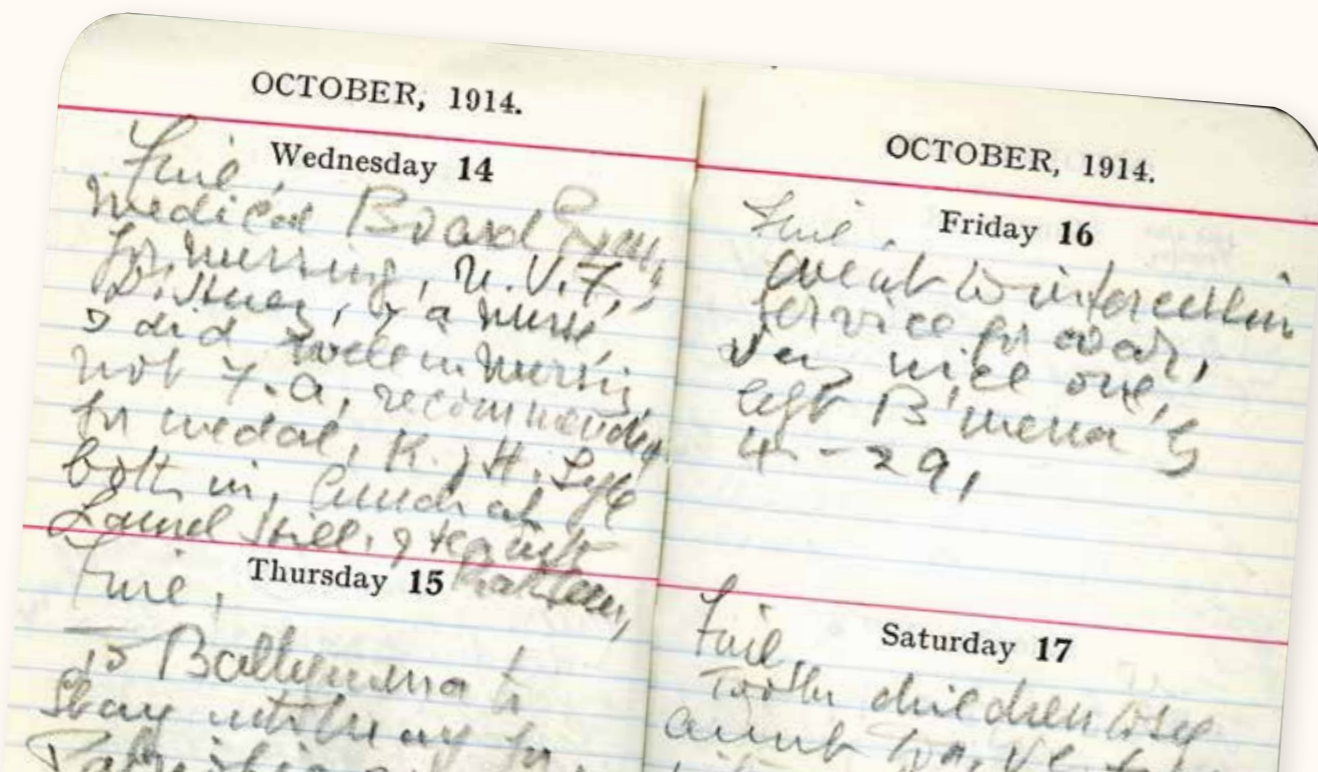 OCTOBER, 1914.
Wednesday 14
Fine,
Medical Board Exam,
for nursing, U.V.F.,
by a nurse,
I did well in nursing
not F.A, recommended
for medal, K. & H. Lyle
both in, lunch at
Laurel Hill, & tea with
Thursday 15
Fine,
To Ballymena to
Stay with
OCTOBER, 1914.
Friday 16
Fine.
Went to intercession
service for war,
very nice one,
left B'mena by
4-29,
Saturday 17
Fine,
Took children
aunt